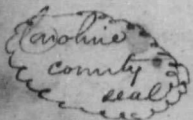 Caroline
county
seal